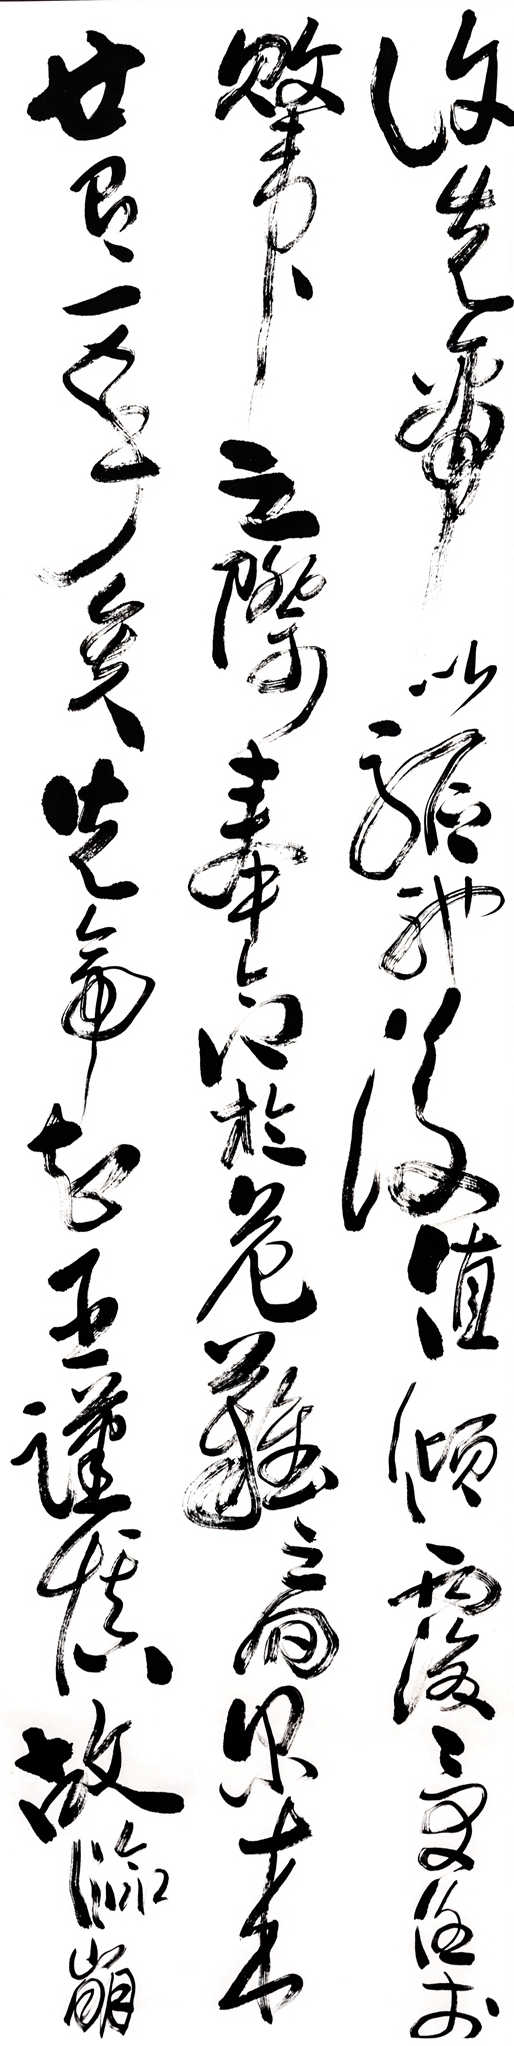 許先帝以驅馳後值傾覆受任於
敗軍之際奉命於危難之間爾來
廿有一年矣先帝知臣謹慎故臨崩